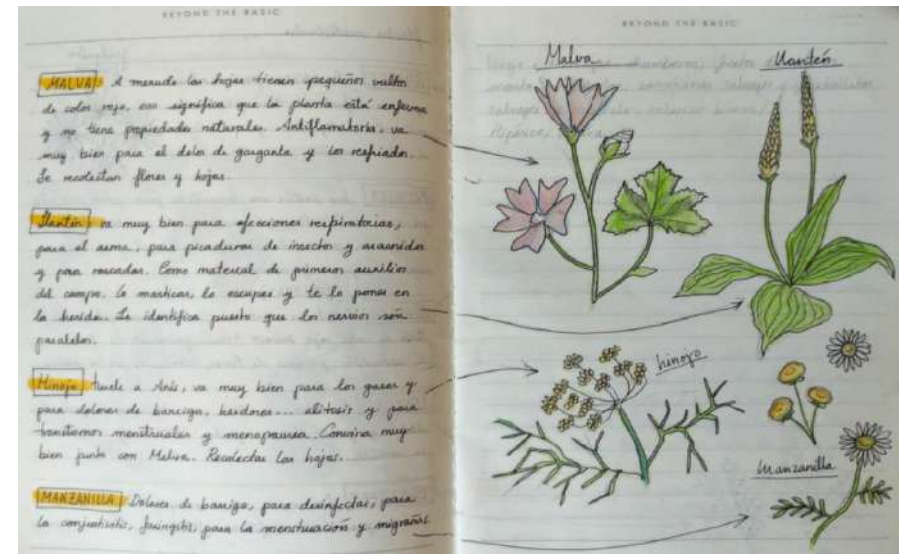 BEYOND THE BASIC
MALVA: A menudo las hojas tienen pequeños
de color rojo, eso significa que la planta está enferma
y no tiene propiedades naturales. Antiflamatoria, va
muy bien para el dolor de garganta y los resfriados.
Se recolectan flores y hojas.
Llantén: va muy bien para afecciones respiratorias,
para el asma, para picaduras de insectos y aracnidos
y para rozadas. Como material de primeros auxilios
del campo. Lo masticas, lo escupes y te lo pones en
la herida. Se identifica puesto que los nervios son
paralelos.
Hinojo: huele a Anís, va muy bien para los gases y
para dolores de barriga, ... alitosis y para
transtornos menstruales y menopausia. Convina muy
bien junto con Malva. Recolectar las hojas.
MANZANILLA: Dolores de barriga, para desinfectar, para
la conjuntivitis, faringitis, para la menstruación y migrañas
BEYOND THE BASIC
Malva
Llantén
hinojo
Manzanilla